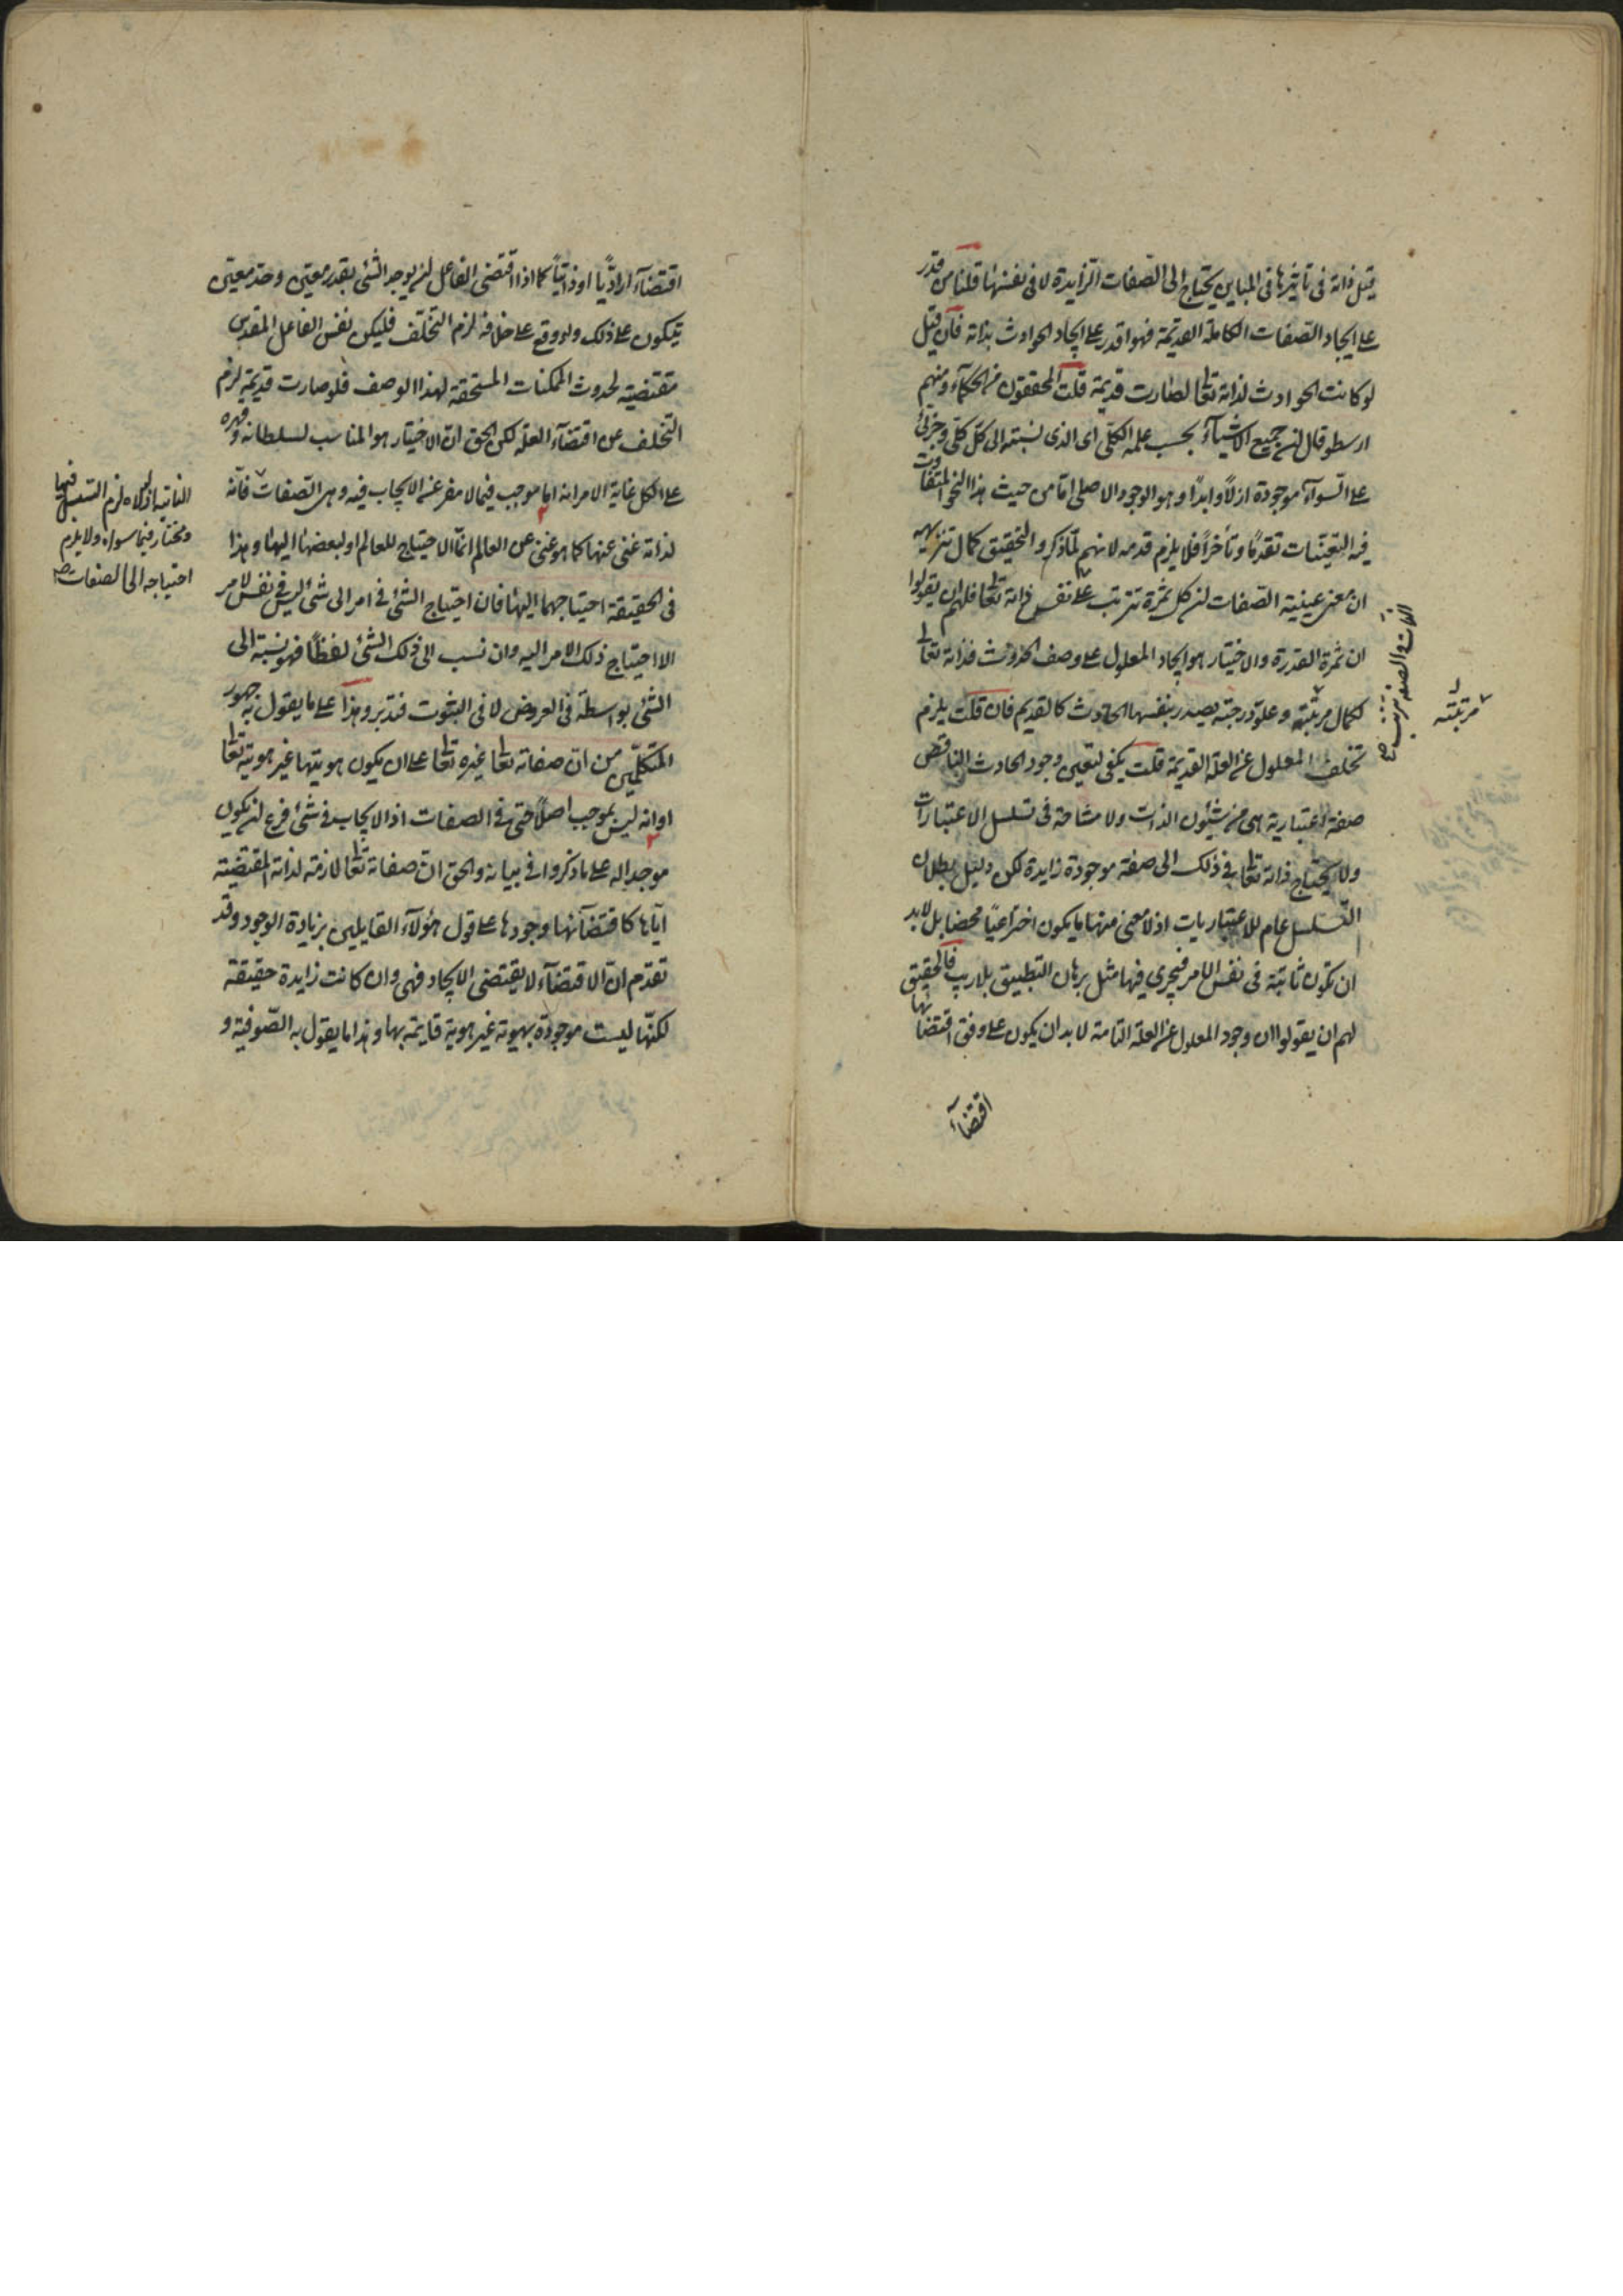 قيل ذاته فى تاثيرها فى المباين يحتاج الى الصفات الزايدة لا فى نفسها قلنا من قدر
على ايجاد الصفات الكاملة القديمة فهو اقدر على ايجاد الحوادث بذاته فان قيل
لو كانت الحوادث لذاته تعالى لصارت قديمة قلت المحققون من الحكماء ومنهم
ارسطو قال ان جميع الاشياء بحسب علمه الكلى اى الذى نسبته الى كل كلى وجزئى
على السواء موجودة ازلاً وابداً وهو الوجود الاصلى اما من حيث هذا النحو المتفاوت
فيه التعينات تقدمًا وتأخرًا فلا يلزم قدمه لا نهم لما ذكر والتحقيق كمال تنزيهه
ان معنى عينية الصفات ان كل ثمرة تترتب على نفس ذاته تعالى فلهم ان يقولوا
ان ثمرة القدرة والاختيار هو ايجاد المعلول على وصف الحدوث فذاته تعالى
لكمال مرتبته وعلو درجته يصدر بنفسها الحادث كالقديم فان قلت يلزم
تخلف المعلول عن العلة القديمة قلت يكفى لتعين وجود الحادث الناقص
صفة اعتبارية هى من شئون الذات ولا مشاحة فى تسلسل الاعتبارات
ولا يحتاج ذاته تعالى فى ذلك الى صفة موجودة زايدة لكن دليل بطلان
التسلسل عام للاعتباريات اذ لا معنى منها ما يكون اختراعيًا محضا بل لابد
ان تكون ثابتة فى نفس الامر فيجرى فيها مثل برهان التطبيق بلا ريب فالتحقيق
لهم ان يقولوا ان وجود المعلول عن العلة التامة لا بد ان يكون على وفق اقتضائها
اقتضاء
مرتبته
اقتضاء اراديًا او ذاتيًا كما اذا اقتضى الفاعل ان يوجد الشئ بقدر معين وحد معين
يتكون على ذلك ولو وقع على خلافه لزم التخلف فليكن نفس الفاعل المقدس
مقتضية لحدوث الممكنات المستحقة لهذا الوصف فلو صارت قديمة لزم
التخلف عن اقتضاء العلة لكن الحق ان الاختيار هو المناسب لسلطانه وقهره
على الكل غاية الامر انه اما موجب فيما لا مفر عن الايجاب فيه وهى الصفات فانه
لذاته غنى عنها كما هو غنى عن العالم انما الاحتياج للعالم او لبعضها اليها وهذا
فى الحقيقة احتياجهما اليها فان احتياج الشئ فى امر الى شئ ليس فى نفس الامر
الا احتياج ذلك الامر اليه وان نسب الى ذلك الشئ لفظًا فهو نسبته الى
الشئ بواسطة فى العروض لا فى الثبوت فتدبر وهذا على ما يقول به جمهور
المتكلمين من ان صفاته تعالى غيره تعالى على ان يكون هويتها غير هويته تعالى
او انه ليس بموجب اصلاً حتى فى الصفات اذ الايجاب فى شئ فرع ان يكون
موجدا له على ما ذكروا فى بيانه والحق ان صفاته تعالى لازمة لذاته المقتضية
اياها كاقتضائها وجودها على قول هؤلاء القايلين بزيادة الوجود وقد
تقدم ان الاقتضاء لا يقتضى الايجاد فهى وان كانت زايدة حقيقة
لكنها ليست موجودة بهوية غير هوية قايمة بها وهذا ما يقول به الصوفية و
لزم التسلسل فيها
ومختار فيما سواه ولا يلزم
احتياجه الى الصفات صح